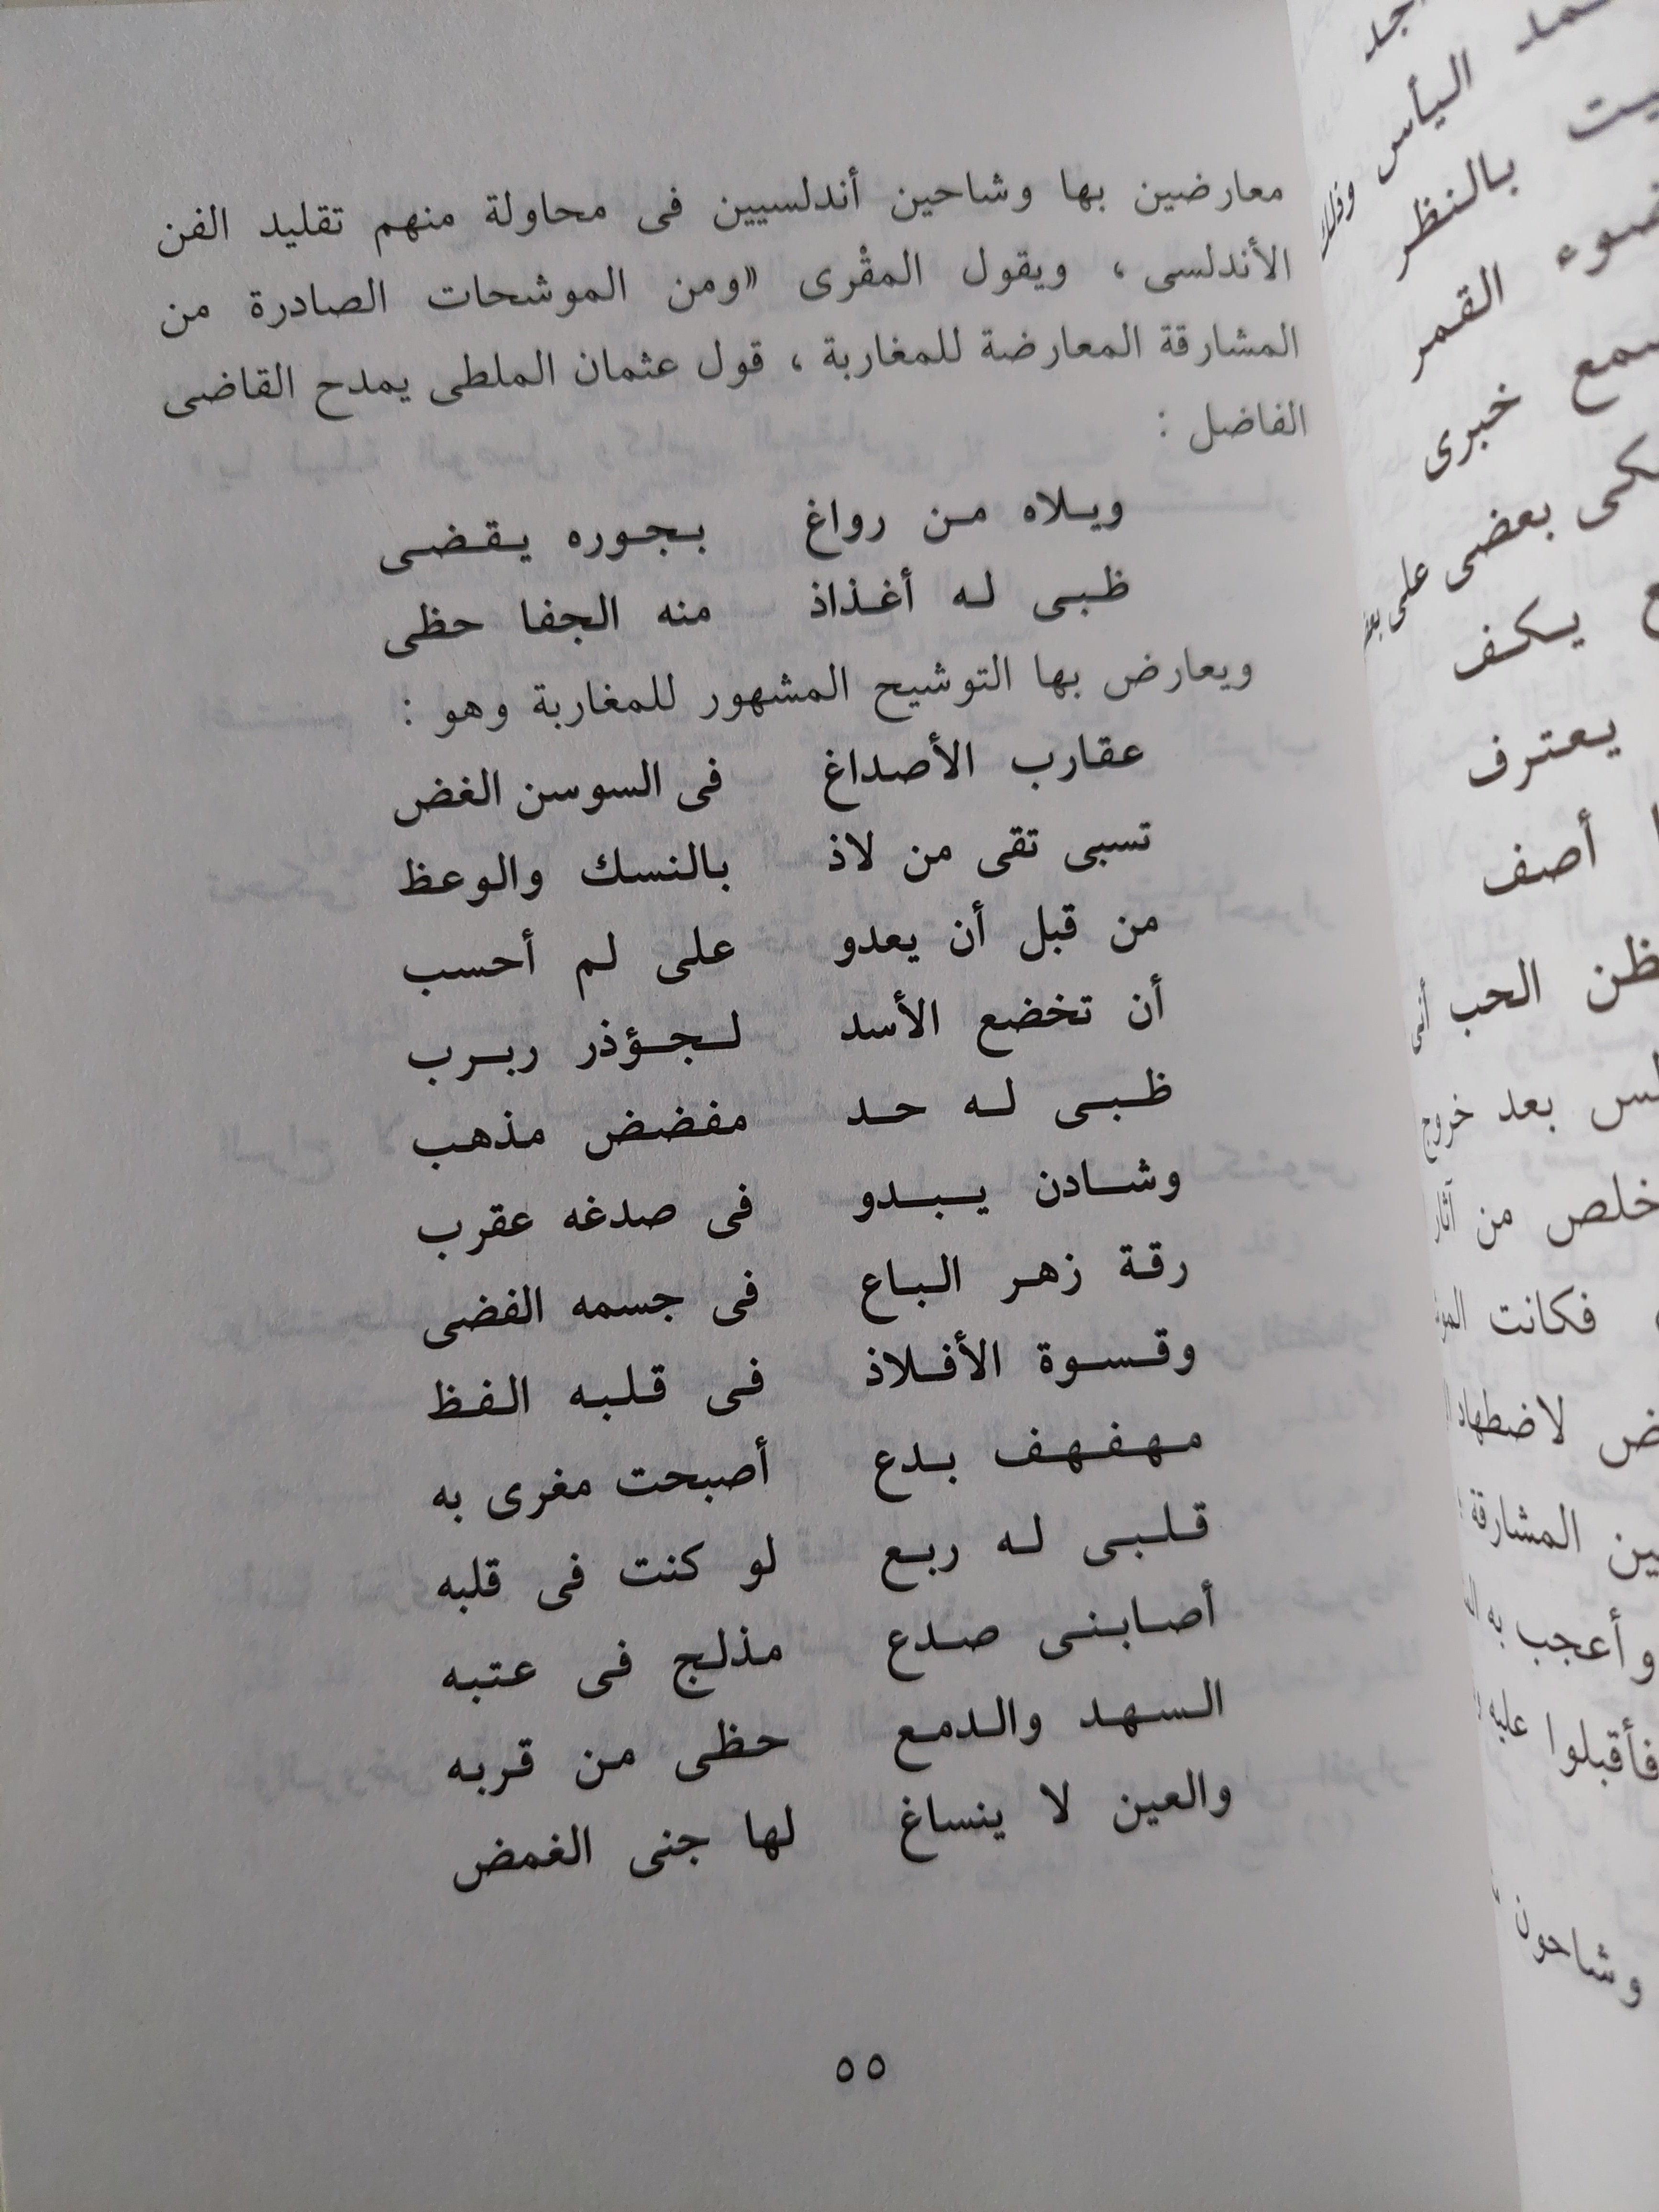 معارضين بها وشاحين أندلسيين فى محاولة منهم تقليد الفن
الأندلسى ، ويقول المقْرى «ومن الموشحات الصادرة من
المشارقة المعارضة للمغاربة ، قول عثمان الملطى يمدح القاضى
الفاضل :
ويلاه من رواغ بجوره يقضى
ظبى له أغذاذ منه الجفا حظى
ويعارض بها التوشيح المشهور للمغاربة وهو :
عقارب الأصداغ فى السوسن الغض
تسبى تقى من لاذ بالنسك والوعظ
من قبل أن يعدو على لم أحسب
أن تخضع الأسد لجؤذر ربرب
ظبى له حد مفضض مذهب
وشادن يبدو فى صدغه عقرب
رقة زهر الباع فى جسمه الفضى
وقسوة الأفلاذ فى قلبه الفظ
مهفهف بدع أصبحت مغرى به
قلبى له ربع لو كنت فى قلبه
أصابنى صدع مذلج فى عتبه
السهد والدمع حظى من قربه
والعين لا ينساغ لها جنى الغمض
٥٥
جد
اليأس وذلك
بالنظر
القمر
خبرى
بعضى على
يكف
يعترف
أصف
ظن الحب
بعد خروج
خلص من آثار
فكانت
لاضطهاد
المشارقة
وأعجب به
فأقبلوا عليه
وشاحون